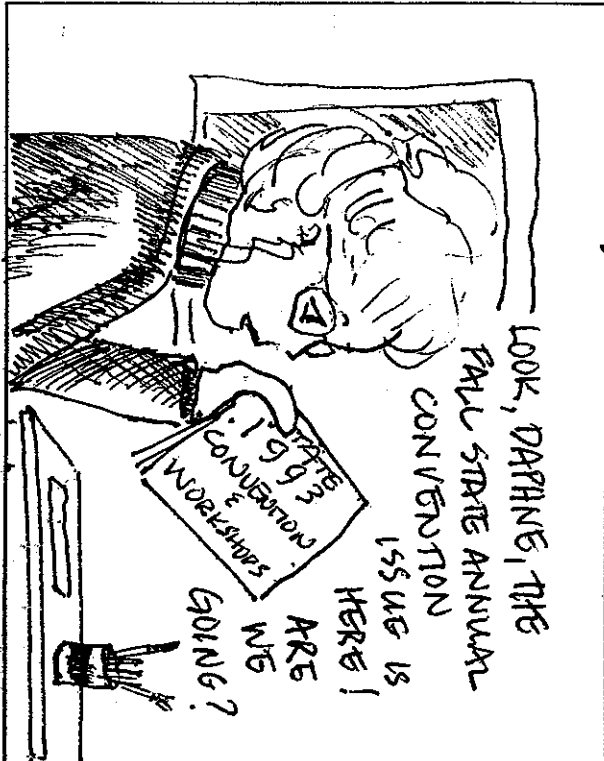 LOOK, DAPHNE, THE
FALL STATE ANNUAL
CONVENTION
ISSUE IS
HERE!
ARE
WE
GOING?
STATE
1993
CONVENTION
&
WORKSHOPS